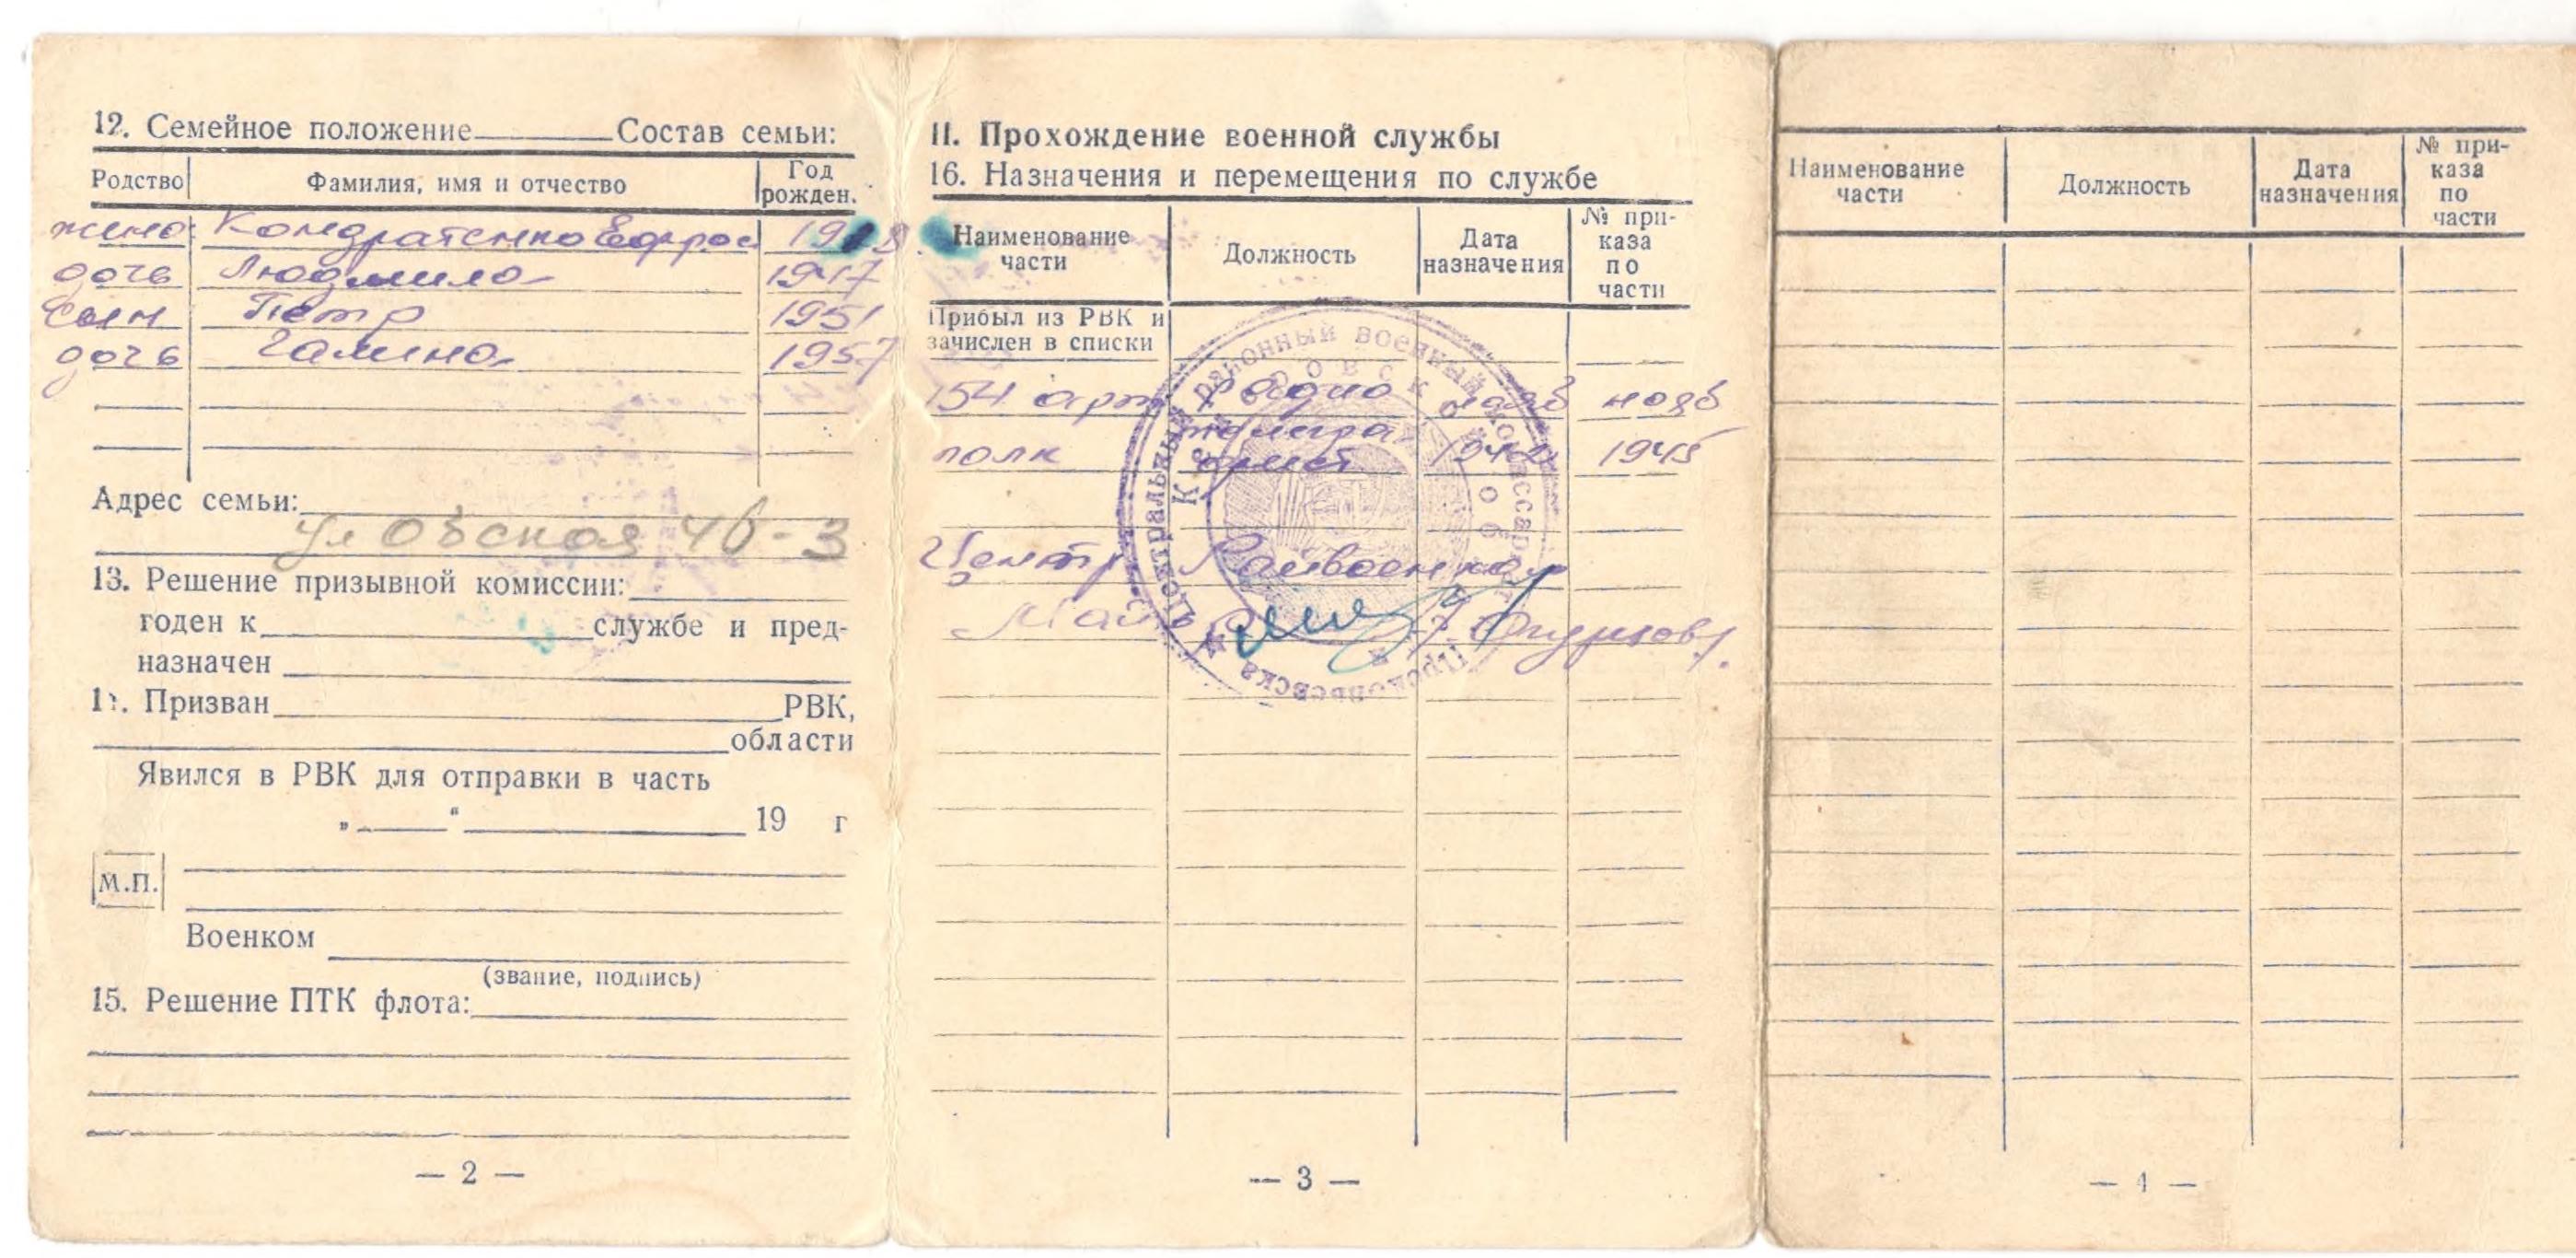 12. Семейное положение Состав семьи:
Родство Фамилия, имя и отчество Год рожден.
жена Кондратенко Ефрос 1918
дочь Людмила 1947
сын Петр 1951
дочь Галина 1957
Адрес семьи:
ул Обская 46-3
13. Решение призывной комиссии:
годен к службе и пред-
назначен
Призван РВК,
области
Явился в РВК для отправки в часть
„ “ 19 г
М.П.
Военком
(звание, подпись)
15. Решение ПТК флота:
— 2 —
II. Прохождение военной службы
16. Назначения и перемещения по службе
Наименование части Должность Дата назначения № при-каза по части
Прибыл из РВК и
зачислен в списки
154 арт Радио нояб нояб
телегра
полк фист 1942 1945
Центр Райвоенком
Майор
Центральный районный военный комиссариат
Прокопьевска
Кемеровской обл
— 3 —
Наименование части Должность Дата назначения № при-каза по части
— 4 —